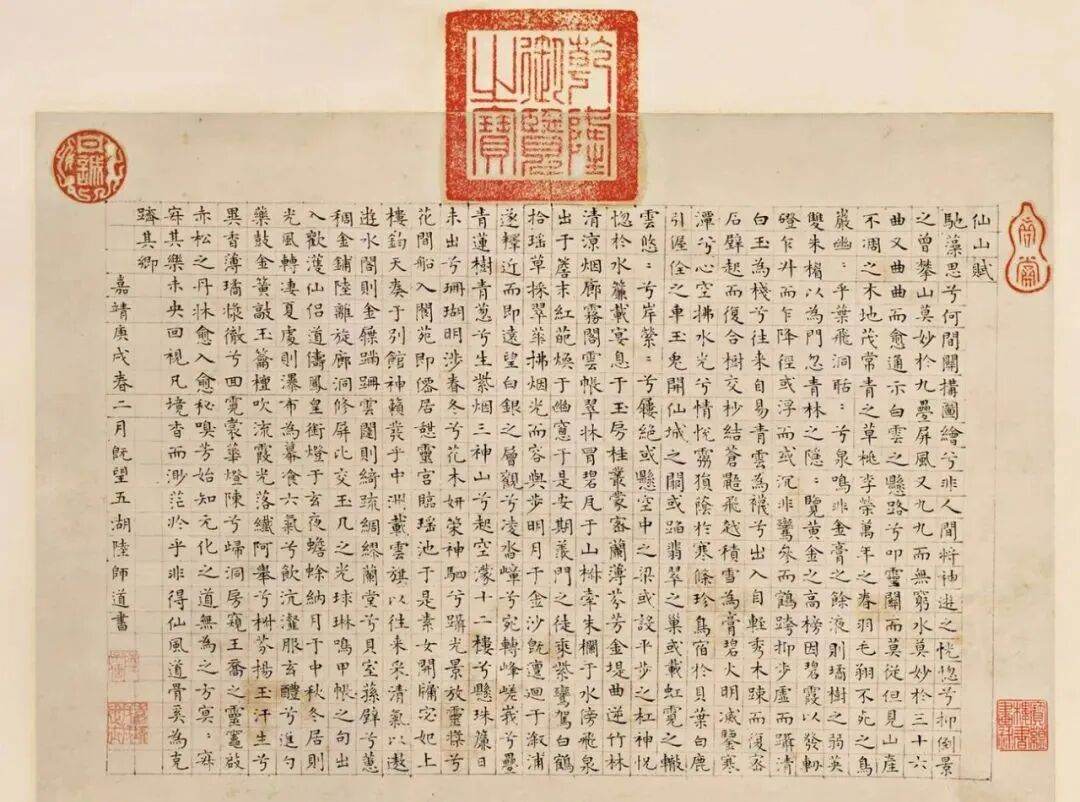 乾隆御覽之寶
仙山賦
馳藻思兮何間關構圖繪兮非人間将神遊之恍惚兮抑倒景
之曾攀山莫妙於九疊屏風又九九而無窮水莫妙於三十六
曲又曲曲而愈通示白雲之懸路兮叩靈關而莫從但見山産
不凋之木地茂常青之草桃李榮萬年之春羽毛翔不死之鳥
巖幽〻乎葉飛洞聒〻兮泉鳴非金膏之餘液則璚樹之弱英
雙朱楣以為門忽青林之隱〻覽黄金之高榜因碧霞以發軔
磴乍升而乍降徑或浮而或沉非鸞參而鶴跨抑步虛而躡清
白玉為棧兮往来自易青雲為襪兮出入自輕秀木踈而復密
石壁起而復合樹交杪結蒼鼯飛越積雪為膏碧火明滅鑒寒
潭兮心空拂水光兮情恱霧猿蔭於寒條珍鳥宿於貝葉白鹿
引偓佺之車玉兎開仙城之闕或蹈翡翠之巢或載虹霓之轍
雲悠〻兮岸縈〻兮鏤絕或懸空中之梁或設平步之杠神恱
惚於水簾載宴息于玉房桂叢蒙密蘭薄芬芳金堤曲逆竹林
清涼烟廊霧閣雲帳翠牀冒碧瓦于山椒牽朱欄于水傍飛泉
出于簷末紅葩煥于幽窻于是安期羨門之徒乘紫鸞駕白鶴
拾瑶草採翠華拂烟光而容與步明月于金沙既邅迴于溆浦
遂釋近而即遠望白銀之層觀兮凌嶂兮宛轉峰嵯峩兮疊
青蓮樹青葱兮生紫烟三神山兮起空濛十二樓兮懸珠簾日
未出兮珊瑚明涉春冬兮花木妍策神駟兮躡光景放靈槳兮
花間船入閬苑即僊居靈宫臨瑶池于是素女開牖宓妃上
樓鈞天奏于别館神籟發乎中洲戴雲旗以往来采清氣以遨
遊水閣則金鏁蹁雲閣則綺疏綢繆蘭堂兮貝室蓀壁兮蕙
稠金鋪陸離旋廊洞修屏比交玉几之光球琳鳴甲帳之句出
入歡護仙侣道儔鳳皇銜燈于玄夜蟾蜍納月于中秋冬居則
光風轉凄夏處則瀑布為幕飡六氣兮飲沆瀣服玄醴兮進勺
藥鼓金簧敲玉籥檀吹流霞光落纖阿舉兮芬揚玉汗生兮
異香薄璚漿徹兮回霓裳華燈陳兮歸洞房窺王喬之靈竈啟
赤松之丹牀愈入愈秘嗅芳始知元化之道無為之方㝠〻寂
寂其樂未央回視凡境杳而渺茫於乎非得仙風道骨奚為克
躋其鄉
嘉靖庚戌春二月既望五湖陸師道書